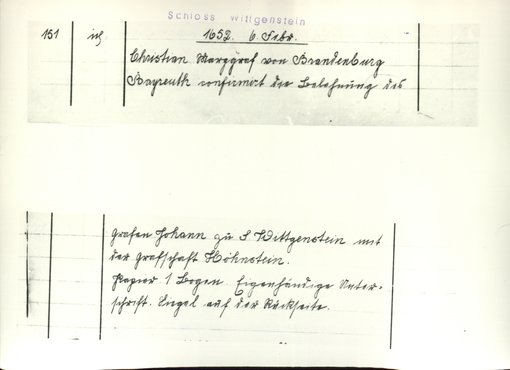 Schloss Wittgenstein
151 ich 1652. 6. Febr.
Christian Marggraf von Brandenburg
Bayreuth confirmirt die Belehnung des
Grafen Johann zu S Wittgenstein mit
der Grafschaft Hohnstein.
Papier 1 Bogen. Eigenhändige Unter-
schrift. Siegel auf der Rückseite.